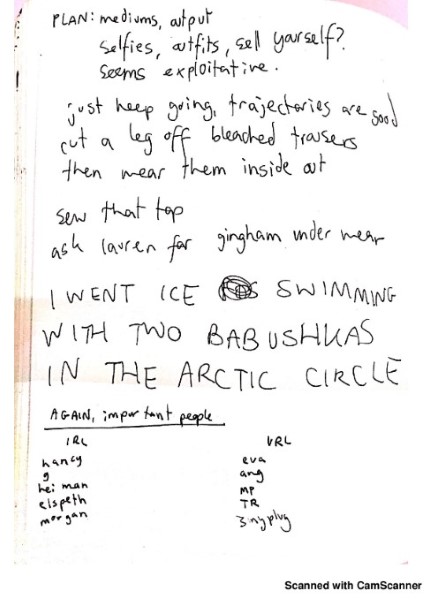 PLAN: mediums, output
selfies, outfits, sell yourself?
seems exploitative.
just keep going, trajectories are good
cut a leg off bleached trousers
then wear them inside out
sew that top
ask lauren for gingham under wear
I WENT ICE SWIMMING
WITH TWO BABUSHKAS
IN THE ARCTIC CIRCLE
AGAIN, important people
IRL
nancy
g
hei man
elspeth
morgan
URL
eva
ang
MP
TR
Scanned with CamScanner